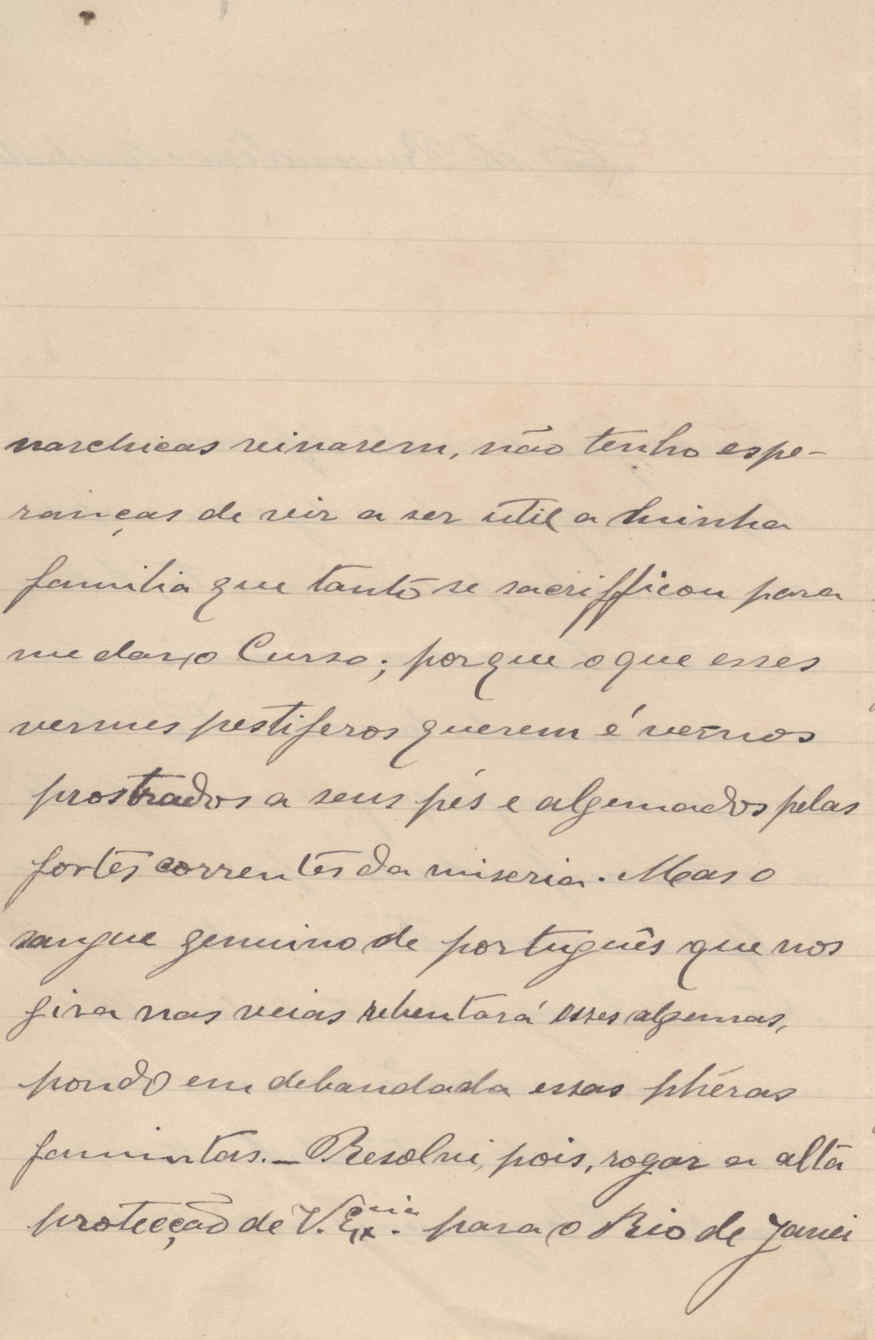 narchicas reinarem, não tenho espe-
ranças de vir a ser util a minha
familia que tanto se sacrifficou para
me dar o Curso; porque o que esses
vermes pestiferos querem é ver-nos
prostrados a seus pés e algemados pelas
fortes correntes da miseria. Mas o
sangue genuino de português que nos
gira nas veias rebentará esses algemas,
pondo em debandada essas phéras
famintas. — Resolvi, pois, rogar a alta
protecção de V. Exᵐⁱᵃ. para o Rio de Janei